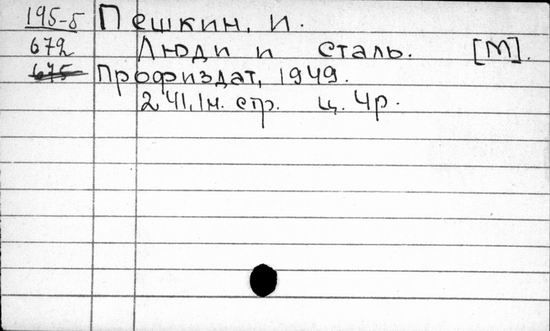 195-5 Пешкин, И.
672 Люди и сталь. [М].
675 Профиздат, 1949.
241,1н. стр. ц. 4р.